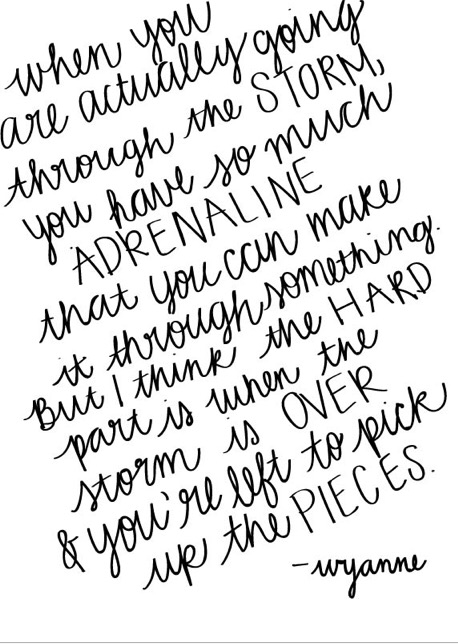 when you
are actually going
through the STORM,
you have so much
ADRENALINE
that you can make
it through something.
But I think the HARD
part is when the
storm is OVER
& you're left to pick
up the PIECES.
-wyanne